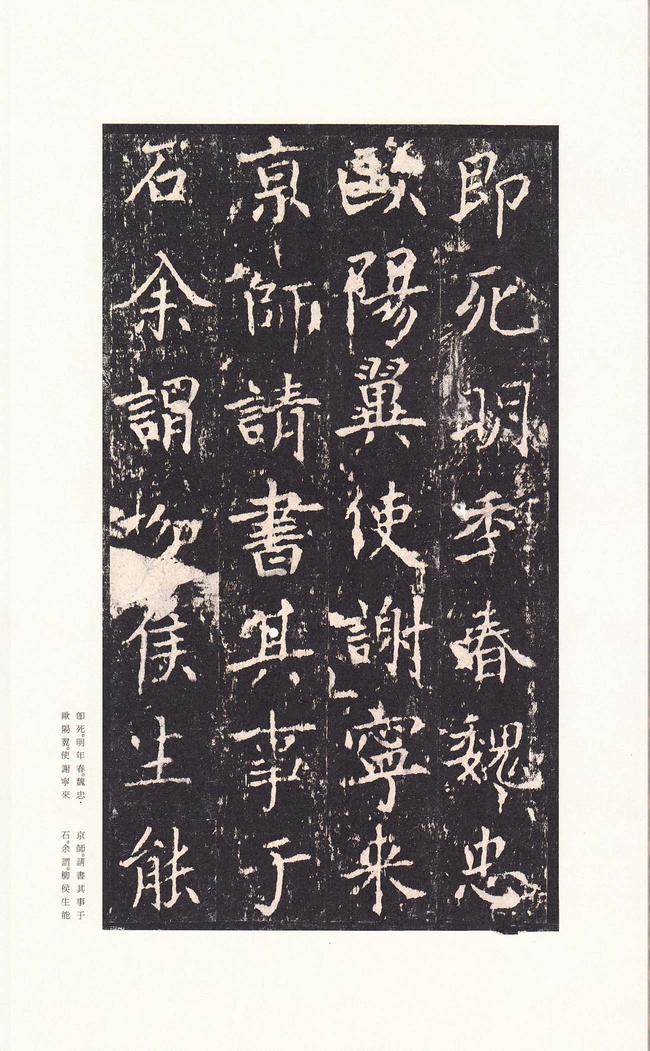 即死明季春魏忠
歐陽翼使謝寧来
京師請書其事于
石余謂柳侯生能
卽死。明年春。魏忠・
歐陽翼。使謝寧來
京師。請書其事于
石。余謂。柳侯生能